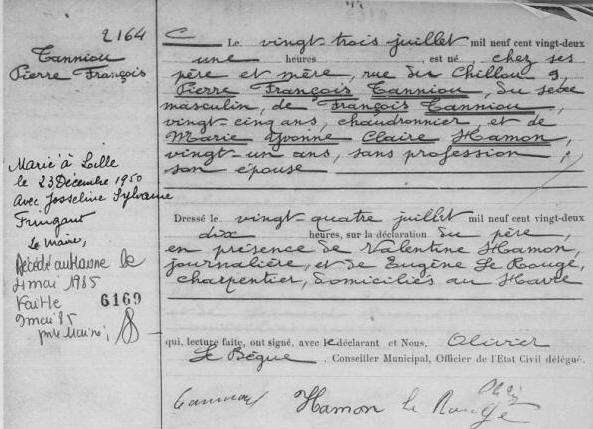 2164
Tanniou
Pierre François
Marié à Lille
le 23 Décembre 1950
avec Josseline Sylvanie
Fringant
Le Maire,
Décédé au Havre le
4 mai 1985
Faitle
6169
7 mai 85
pr le Maire,
C Le vingt-trois juillet mil neuf cent vingt-deux
une heures , est né chez ses
père et mère, rue du Chillou 9,
Pierre François Tanniou, du sexe
masculin, de François Tanniou,
vingt-cinq ans, chaudronnier, et de
Marie Yvonne Claire Hamon,
vingt-un ans, sans profession,
son épouse
Dressé le vingt-quatre juillet mil neuf cent vingt-deux
dix heures, sur la déclaration du père,
en présence de Valentine Hamon,
journalière, et de Eugène Le Rouge,
charpentier, domiciliés au Havre
qui, lecture faite, ont signé, avec le déclarant et Nous, Olivier
Le Bègue , Conseiller Municipal, Officier de l'Etat Civil délégué.
Tanniou Hamon le Rouge